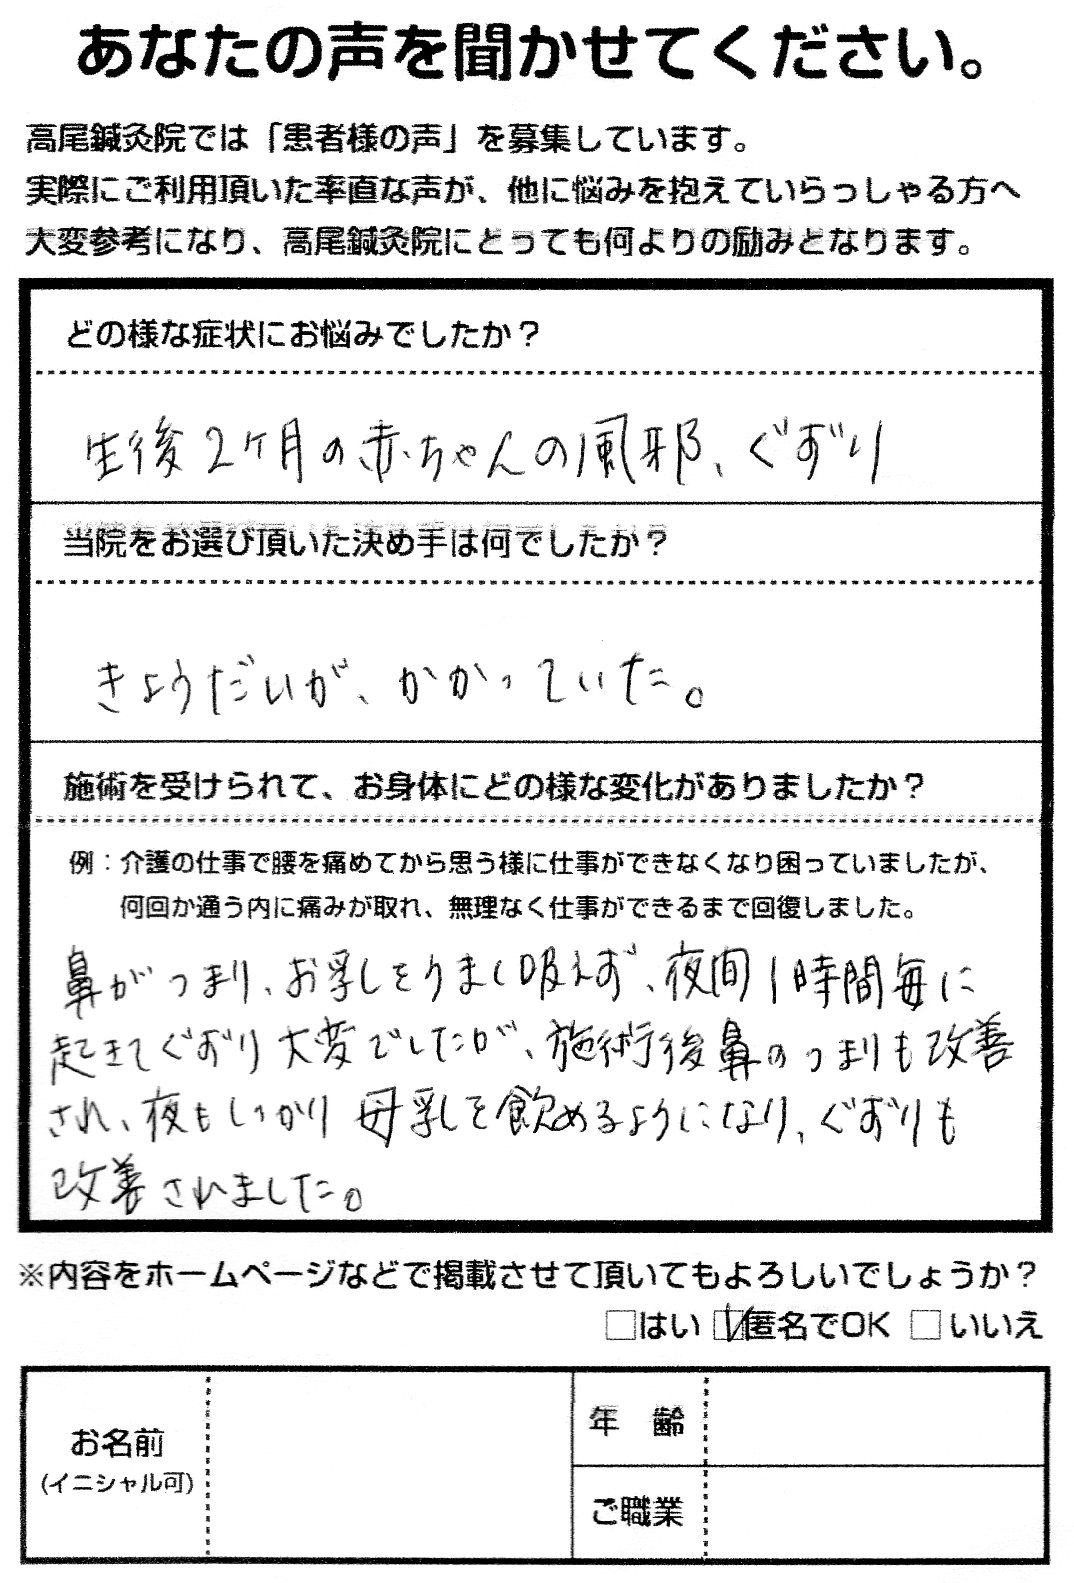 あなたの声を聞かせてください。
高尾鍼灸院では「患者様の声」を募集しています。
実際にご利用頂いた率直な声が、他に悩みを抱えていらっしゃる方へ
大変参考になり、高尾鍼灸院にとっても何よりの励みとなります。
どの様な症状にお悩みでしたか？
生後2ヶ月の赤ちゃんの風邪、ぐずり
当院をお選び頂いた決め手は何でしたか？
きょうだいが、かかっていた。
施術を受けられて、お身体にどの様な変化がありましたか？
例：介護の仕事で腰を痛めてから思う様に仕事ができなくなり困っていましたが、
何回か通う内に痛みが取れ、無理なく仕事ができるまで回復しました。
鼻がつまり、お乳しをうまく吸えず、夜間1時間毎に
起きてぐずり大変でしたが、施術後鼻のつまりも改善
され、夜もしっかり母乳を飲めるようになり、ぐずりも
改善されました。
※内容をホームページなどで掲載させて頂いてもよろしいでしょうか？
□はい ☑匿名でOK □いいえ
お名前
(イニシャル可)
年 齢
ご職業